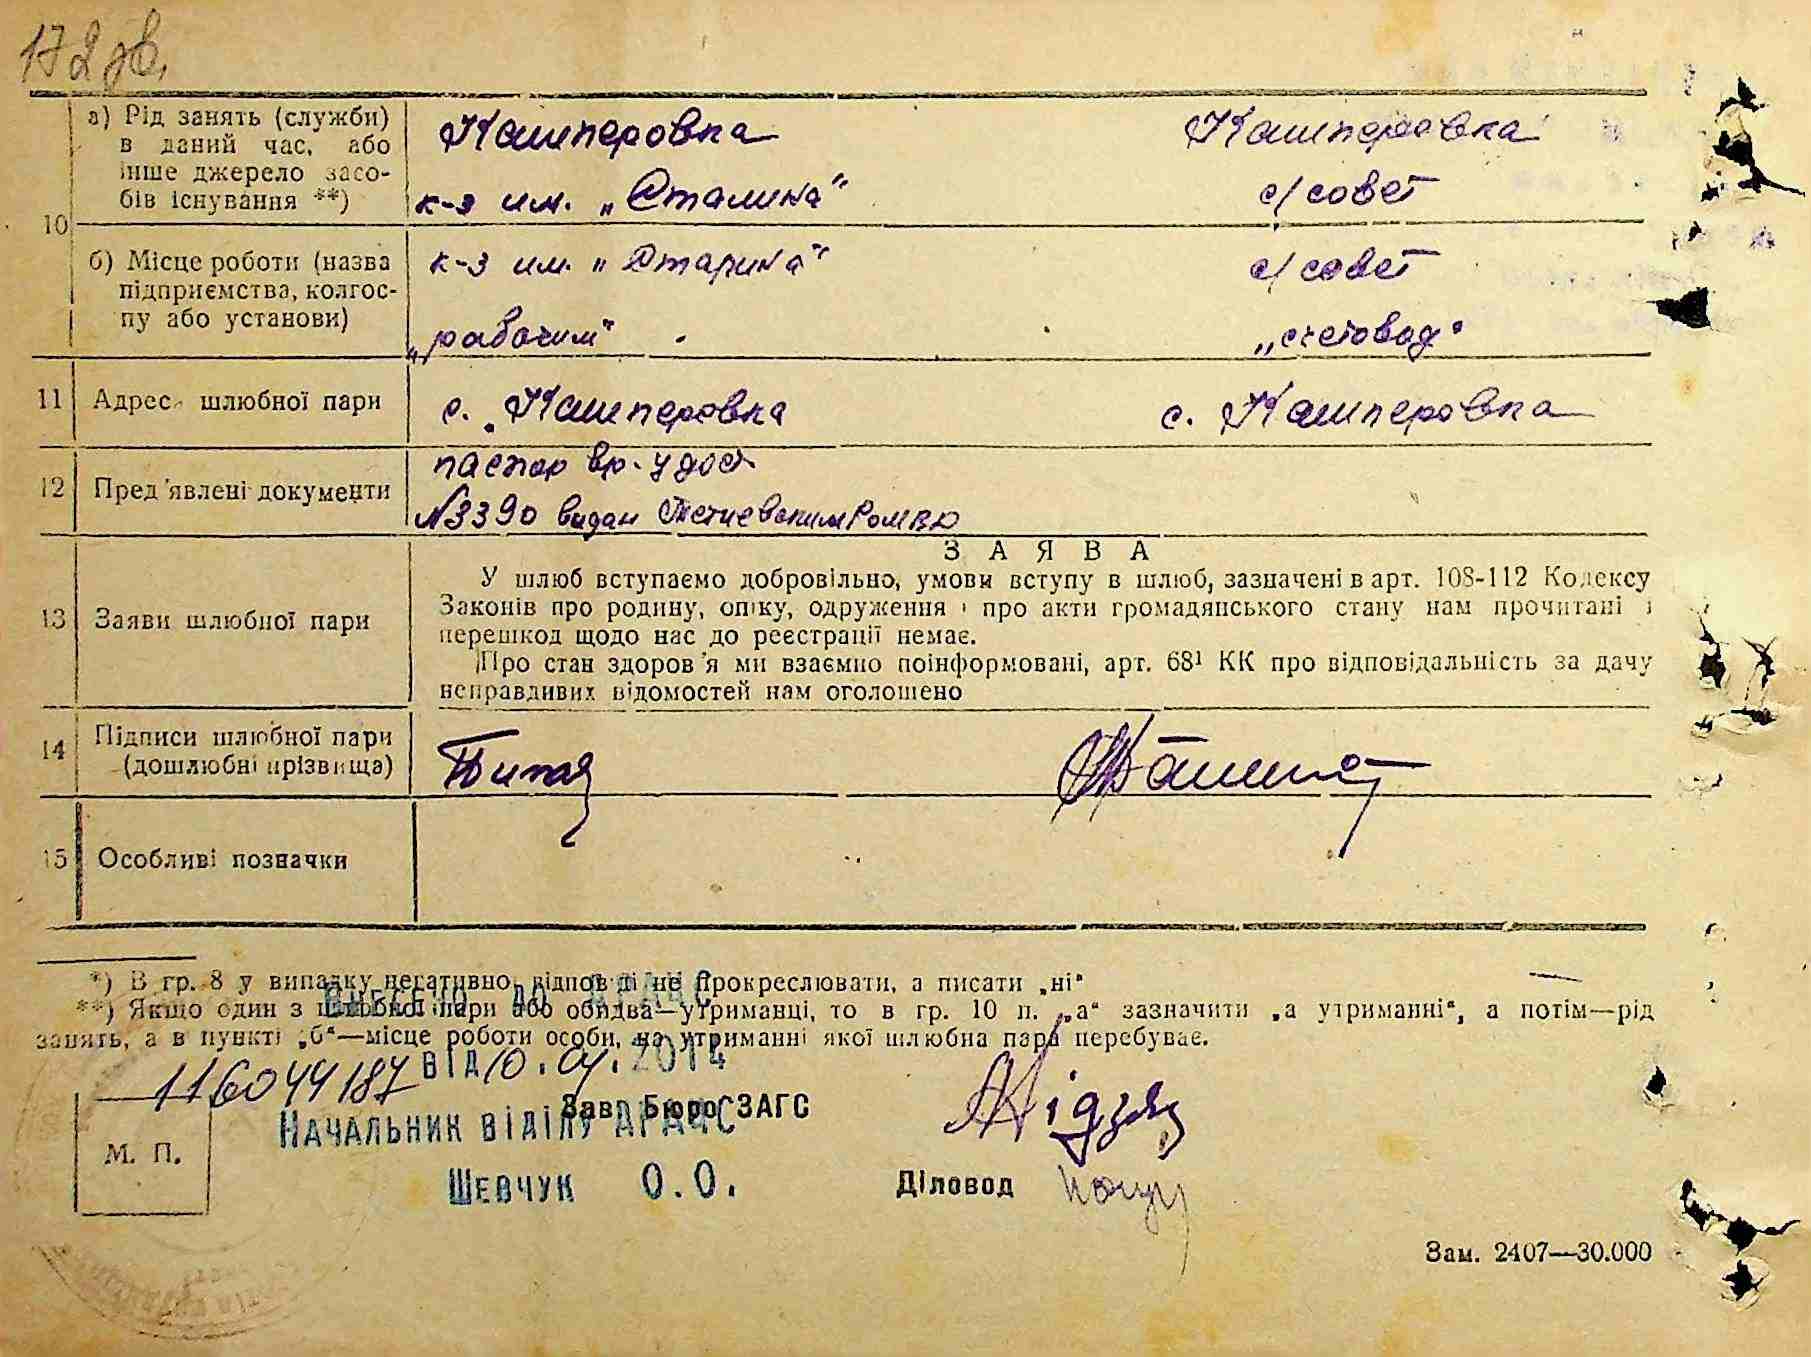 172 зв.
10
а) Рід занять (служби) в даний час, або інше джерело засобів існування **)
Кашперовка Кашперовка
к-з им. „Сталина" с/совет
б) Місце роботи (назва підприємства, колгоспу або установи)
к-з им. „Сталина" с/совет
„рабочим" „счетовод"
11 Адрес шлюбної пари с. Кашперовка с. Кашперовка
12 Пред'явлені документи
паспор вр. удост
№3390 видан Тетиевским
13 Заяви шлюбної пари
ЗАЯВА
У шлюб вступаємо добровільно, умови вступу в шлюб, зазначені в арт. 108-112 Кодексу
Законів про родину, опіку, одруження і про акти громадянського стану нам прочитані і
перешкод щодо нас до реєстрації немає.
Про стан здоров'я ми взаємно поінформовані, арт. 68¹ КК про відповідальність за дачу
неправдивих відомостей нам оголошено
14 Підписи шлюбної пари
(дошлюбні прізвища)
15 Особливі позначки
*) В гр. 8 у випадку негативної відповіді не прокреслювати, а писати „ні"
ВНЕСЕНО ДО ДРАЦС
**) Якщо один з шлюбної пари або обидва—утриманці, то в гр. 10 п. „а" зазначити „а утриманні", а потім—рід
занять, а в пункті „б"—місце роботи особи, на утриманні якої шлюбна пара перебуває.
116044187 ВІД 10.04.2014
Зав. Бюро ЗАГС
НАЧАЛЬНИК ВІДІЛУ ДРАЦС
М. П.
ШЕВЧУК О.О.
Діловод
Зам. 2407—30.000